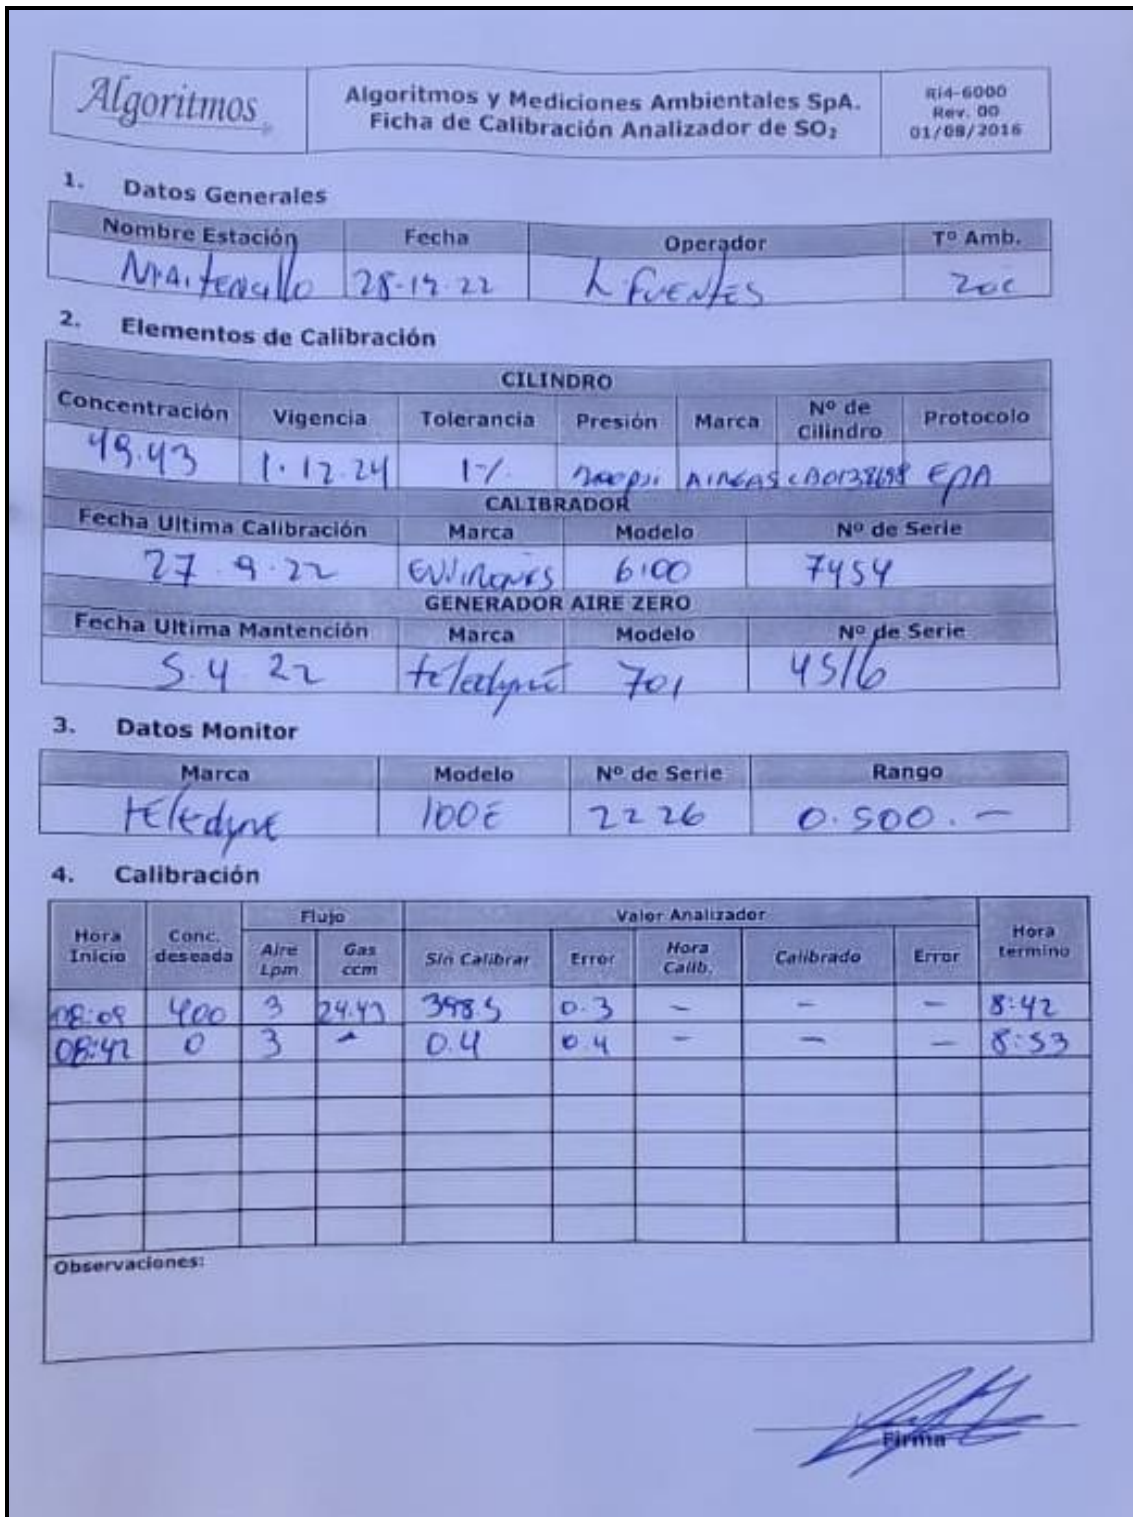 Algoritmos
Algoritmos y Mediciones Ambientales SpA.
Ficha de Calibración Analizador de SO₂
RI4-6000
Rev. 00
01/08/2016
1. Datos Generales
Nombre Estación Fecha Operador Tº Amb.
22 L FUENTES
2. Elementos de Calibración
CILINDRO
Concentración Vigencia Tolerancia Presión Marca Nº de Cilindro Protocolo
49.43 1.12.24 1% AIRGAS EPA
CALIBRADOR
Fecha Ultima Calibración Marca Modelo Nº de Serie
27.9.22 6100 7454
GENERADOR AIRE ZERO
Fecha Ultima Mantención Marca Modelo Nº de Serie
5.4.22 teledyne 701 4516
3. Datos Monitor
Marca Modelo Nº de Serie Rango
teledyne 100E 2226 0.500.-
4. Calibración
Flujo Valor Analizador
Hora Inicio Conc. deseada Aire Lpm Gas ccm Sin Calibrar Error Hora Calib. Calibrado Error Hora termino
08:09 400 3 398.5 0.3 - - - 8:42
08:42 0 3 - 0.4 0.4 - - - 8:53
Observaciones:
Firma